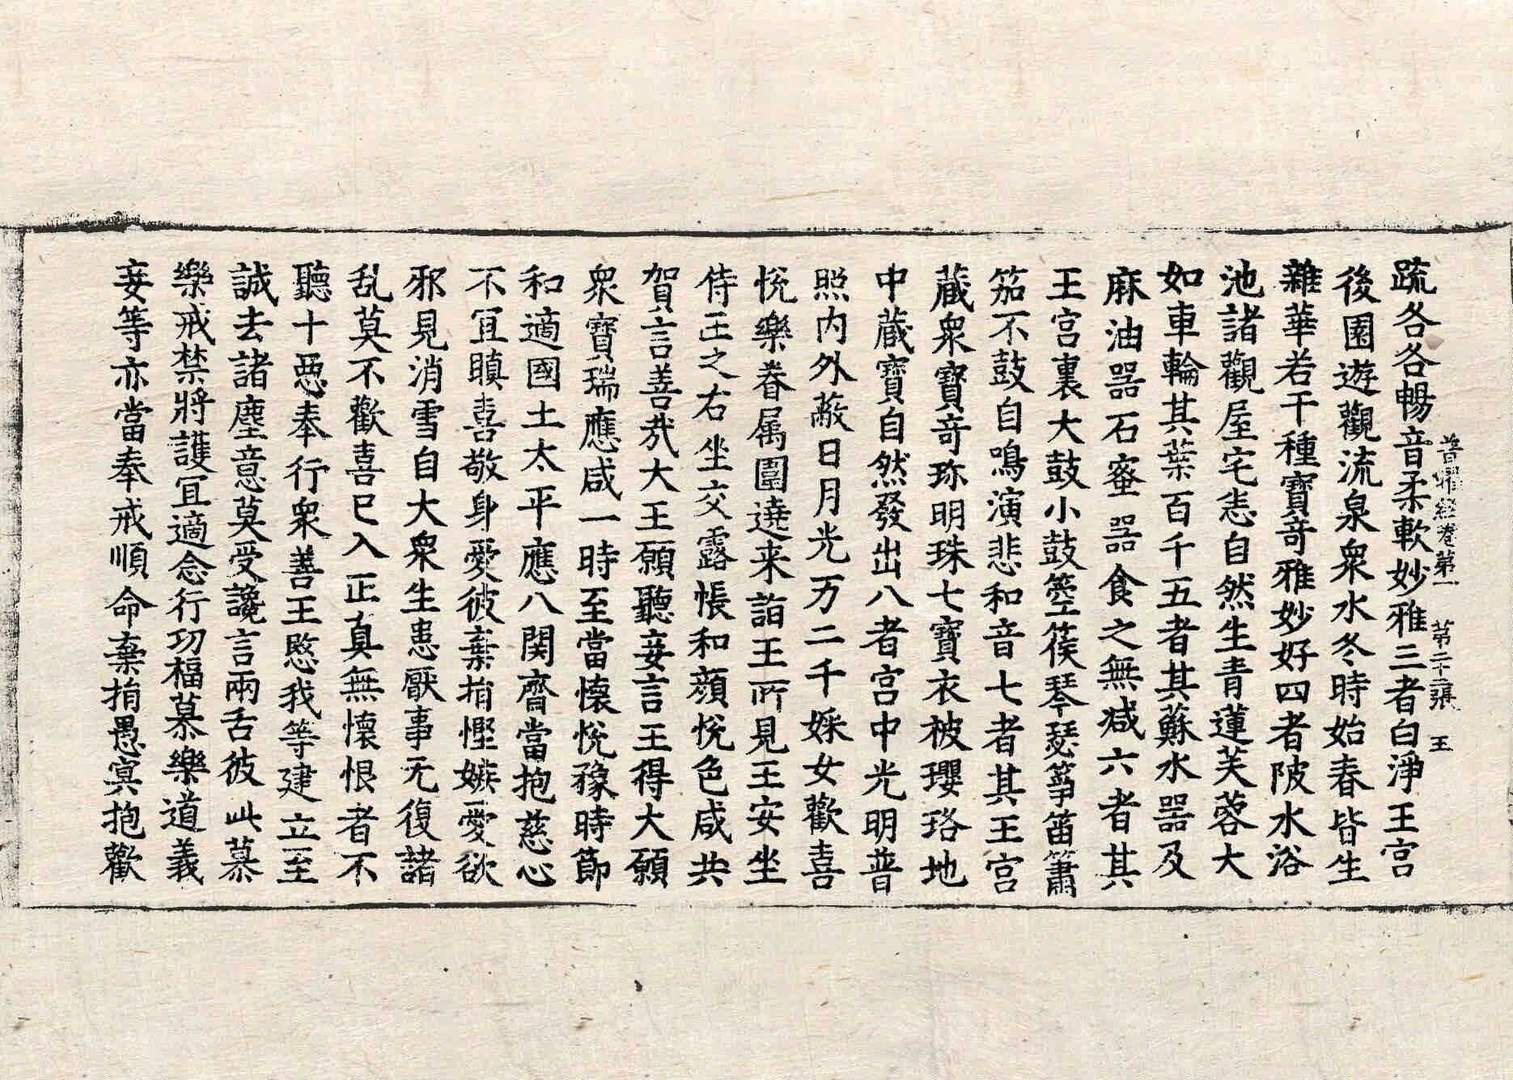 䟽各各暢音柔軟妙雅三者白淨王宮
普曜経卷第一　第二十二張　王
後園遊觀流泉衆水冬時始春皆生
雜華若干種寶竒雅妙好四者陂水浴
池諸觀屋宅恙自然生青蓮芙蓉大
如車輪其葉百千五者其蘇水器及
麻油器石蜜器食之無减六者其
王宮裏大鼓小鼓箜篌琴瑟箏笛簫
笳不鼓自鳴演悲和音七者其王宮
蔵衆寶竒珎明珠七寶衣被瓔珞地
中蔵寶自然發出八者宮中光明普
照内外蔽日月光万二千婇女歡喜
悅樂眷属圍遶来詣王所見王安坐
侍王之右坐交露帳和顔悅色咸共
賀言善㢤大王願聽妾言王得大願
衆寶瑞應咸一時至當懷悅豫時節
和適國土太平應八関齋當抱慈心
不冝瞋恚敬身愛彼棄捐慳嫉愛欲
邪見消雪自大衆生恚厭事无復諸
乱莫不歡喜已入正真無懷恨者不
聽十惡奉行衆善王愍我等建立至
誠去諸塵意莫受讒言兩舌彼此慕
樂戒禁將護冝適念行功福慕樂道義
妾等亦當奉戒順命棄捐愚冥抱歡